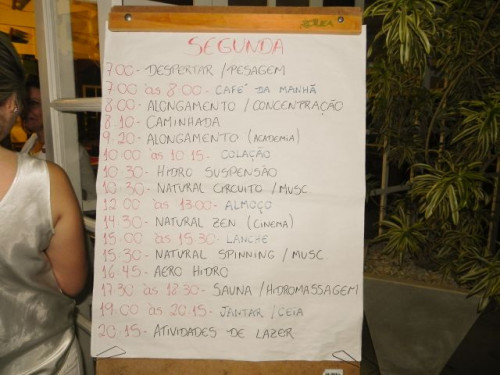 SEGUNDA
7:00 - DESPERTAR / PESAGEM
7:00 às 8:00 - CAFÉ DA MANHÃ
8:00 - ALONGAMENTO / CONCENTRAÇÃO
8:10 - CAMINHADA
9:20 - ALONGAMENTO (ACADEMIA)
10:00 às 10:15 - COLAÇÃO
10:30 - HIDRO SUSPENSÃO
10:30 - NATURAL CIRCUITO / MUSC
12:00 às 13:00 - ALMOÇO
14:30 - NATURAL ZEN (CINEMA)
15:00 às 15:30 - LANCHE
15:30 - NATURAL SPINNING / MUSC
16:45 - AERO HIDRO
17:30 às 18:30 - SAUNA / HIDROMASSAGEM
19:00 às 20:15 - JANTAR / CEIA
20:15 - ATIVIDADES DE LAZER